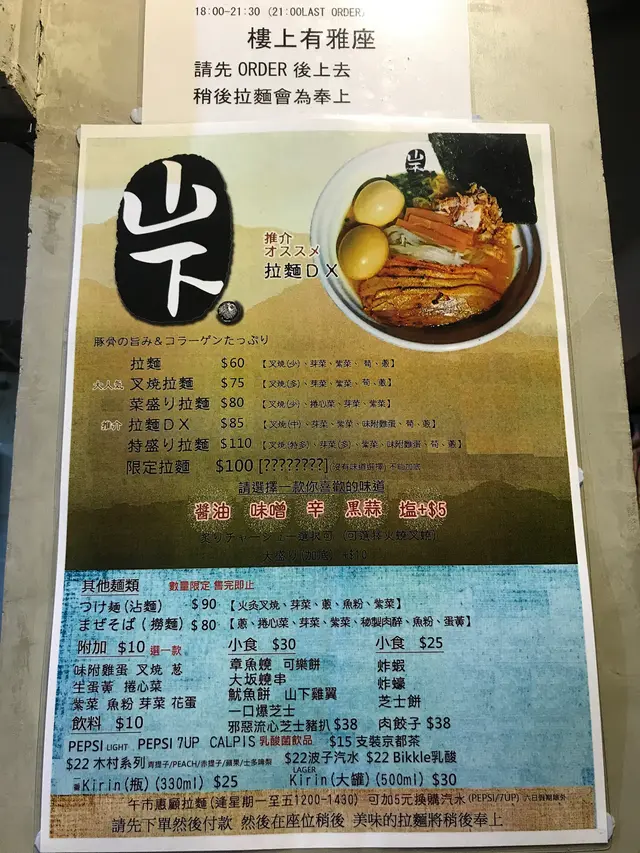 18:00-21:30 (21:00LAST ORDER)
樓上有雅座
請先 ORDER 後上去
稍後拉麵會為奉上
山下
山下
推介
オススメ
拉麵ＤＸ
豚骨の旨み＆コラーゲンたっぷり
拉麵 $60 【叉燒(少)、芽菜、紫菜、筍、蔥】
大人氣 叉燒拉麵 $75 【叉燒(多)、芽菜、紫菜、筍、蔥】
菜盛り拉麵 $80 【叉燒(少)、捲心菜、芽菜、紫菜】
推介 拉麵ＤＸ $85 【叉燒(中)、芽菜、紫菜、味附雞蛋、筍、蔥】
特盛り拉麵 $110 【叉燒(特多)、芽菜(多)、紫菜、味附雞蛋、筍、蔥】
限定拉麵 $100 [????????] (沒有味道選擇) 不能加底
請選擇一款你喜歡的味道
醬油 味噌 辛 黒蒜 塩+$5
炙りチャーシュー選択可 (可選擇火燒叉燒)
大盛り(加底) +$10
其他麵類 數量限定 售完即止
つけ麵(沾麵) $90 【火灸叉燒、芽菜、蔥、魚粉、紫菜】
まぜそば(撈麵) $80 【蔥、捲心菜、芽菜、紫菜、秘製肉醉、魚粉、蛋黃】
附加 $10 選一款
味附雞蛋 叉燒 葱
生蛋黃 捲心菜
紫菜 魚粉 芽菜 花蛋
飲料 $10
小食 $30
章魚燒 可樂餅
大坂燒串
魷魚餅 山下雞翼
一口爆芝士
邪惡流心芝士豬扒 $38
小食 $25
炸蝦
炸蠔
芝士餅
肉餃子 $38
PEPSI LIGHT PEPSI 7UP CALPIS 乳酸菌飲品 $15 支裝京都茶
$22 木村系列 青提子/PEACH/赤提子/蘋果/士多啤梨 $22波子汽水 $22 Bikkle乳酸
Kirin(瓶) (330ml) $25 LAGER Kirin(大罐) (500ml) $30
午市惠顧拉麵(逢星期一至五1200-1430) 可加5元換購汽水(PEPSI/7UP) 六日假期除外
請先下單然後付款 然後在座位稍後 美味的拉麵將稍後奉上